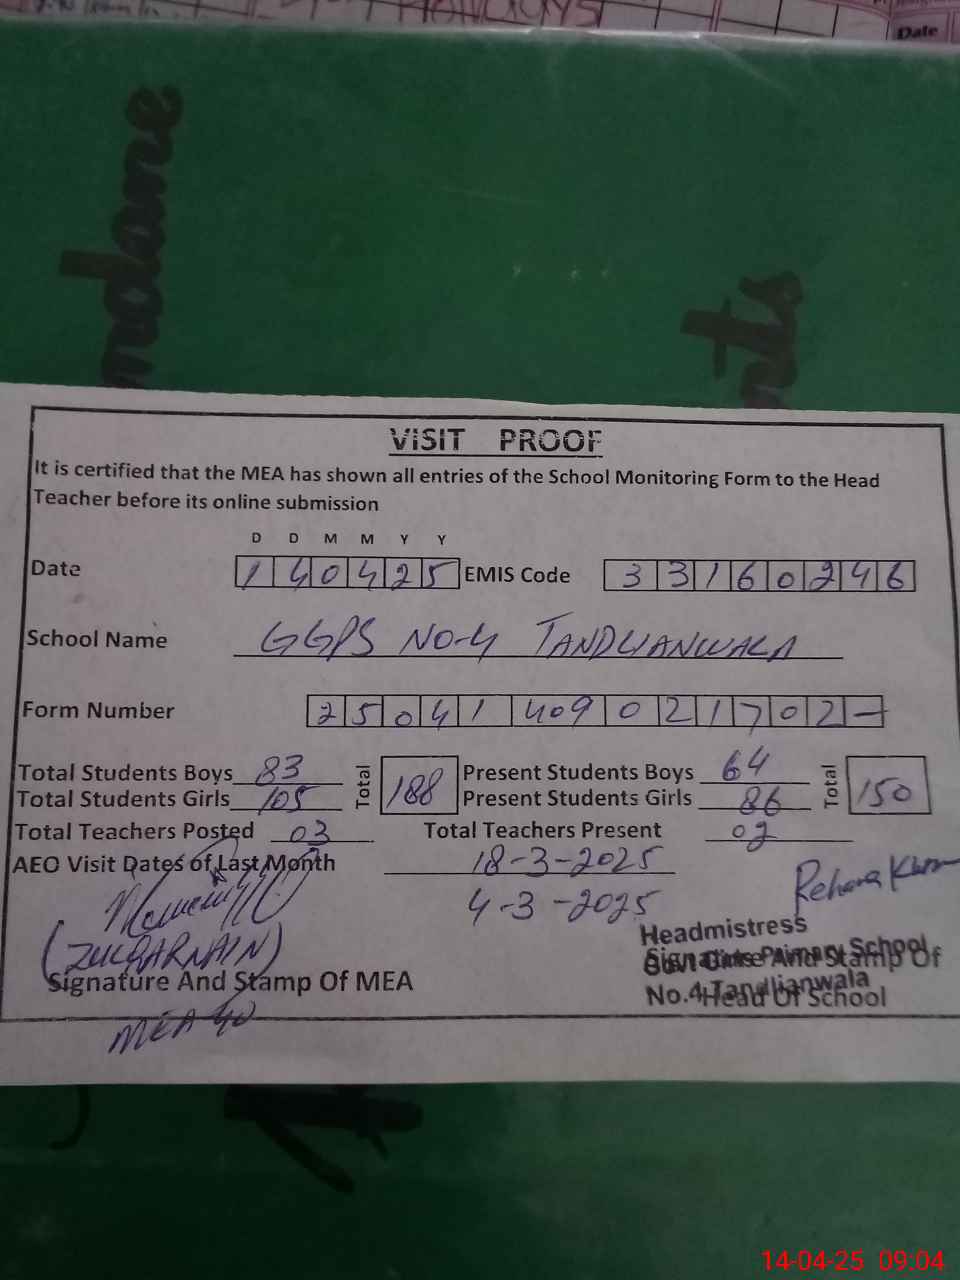 HOLIDAYS
Date
ndane
nts
VISIT PROOF
It is certified that the MEA has shown all entries of the School Monitoring Form to the Head
Teacher before its online submission
D D M M Y Y
Date 1 4 0 4 2 5 EMIS Code 3 3 1 6 0 2 4 6
School Name GGPS NO-4 TANDLIANWALA
Form Number 2 5 0 4 1 409 0 2 1 7 0 2 -
Total Students Boys 83 Total 188 Present Students Boys 64 Total 150
Total Students Girls 105 Present Students Girls 86
Total Teachers Posted 03 Total Teachers Present 02
AEO Visit Dates of Last Month 18-3-2025
4-3-2025
Rehana
(ZULQARNAIN)
Signature And Stamp Of MEA
MEA 40
Headmistress
Signature And Stamp Of
Govt Girls Primary School
No.4 Tandlianwala
Head Of School
14-04-25 09:04